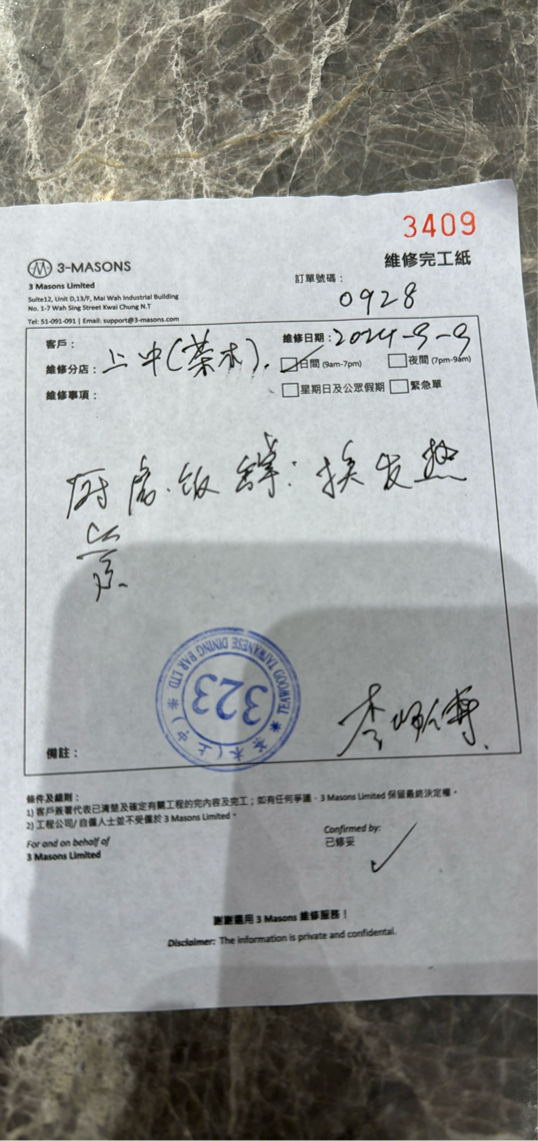 3409
3-MASONS
維修完工紙
3 Masons Limited
訂單號碼：
Suite12, Unit D,13/F, Mai Wah Industrial Building
0928
No. 1-7 Wah Sing Street Kwai Chung N.T
Tel: 51-091-091 | Email: support@3-masons.com
客戶：
維修日期：2024-9-9
維修分店：上中(茶木).
日間 (9am-7pm) 夜間 (7pm-9am)
維修事項：
星期日及公眾假期 緊急單
厨房.饭 : 换发热
管.
TEAWOOD TAIWANESE DINING BAR LTD
茶木(上中)
323
備註：
條件及細則：
1) 客戶簽署代表已清楚及確定有關工程的完內容及完工；如有任何爭議，3 Masons Limited 保留最終決定權。
2) 工程公司/ 自僱人士並不受僱於 3 Masons Limited。
For and on behalf of
3 Masons Limited
Confirmed by:
已修妥
謝謝選用 3 Masons 維修服務！
Disclaimer: The information is private and confidential.